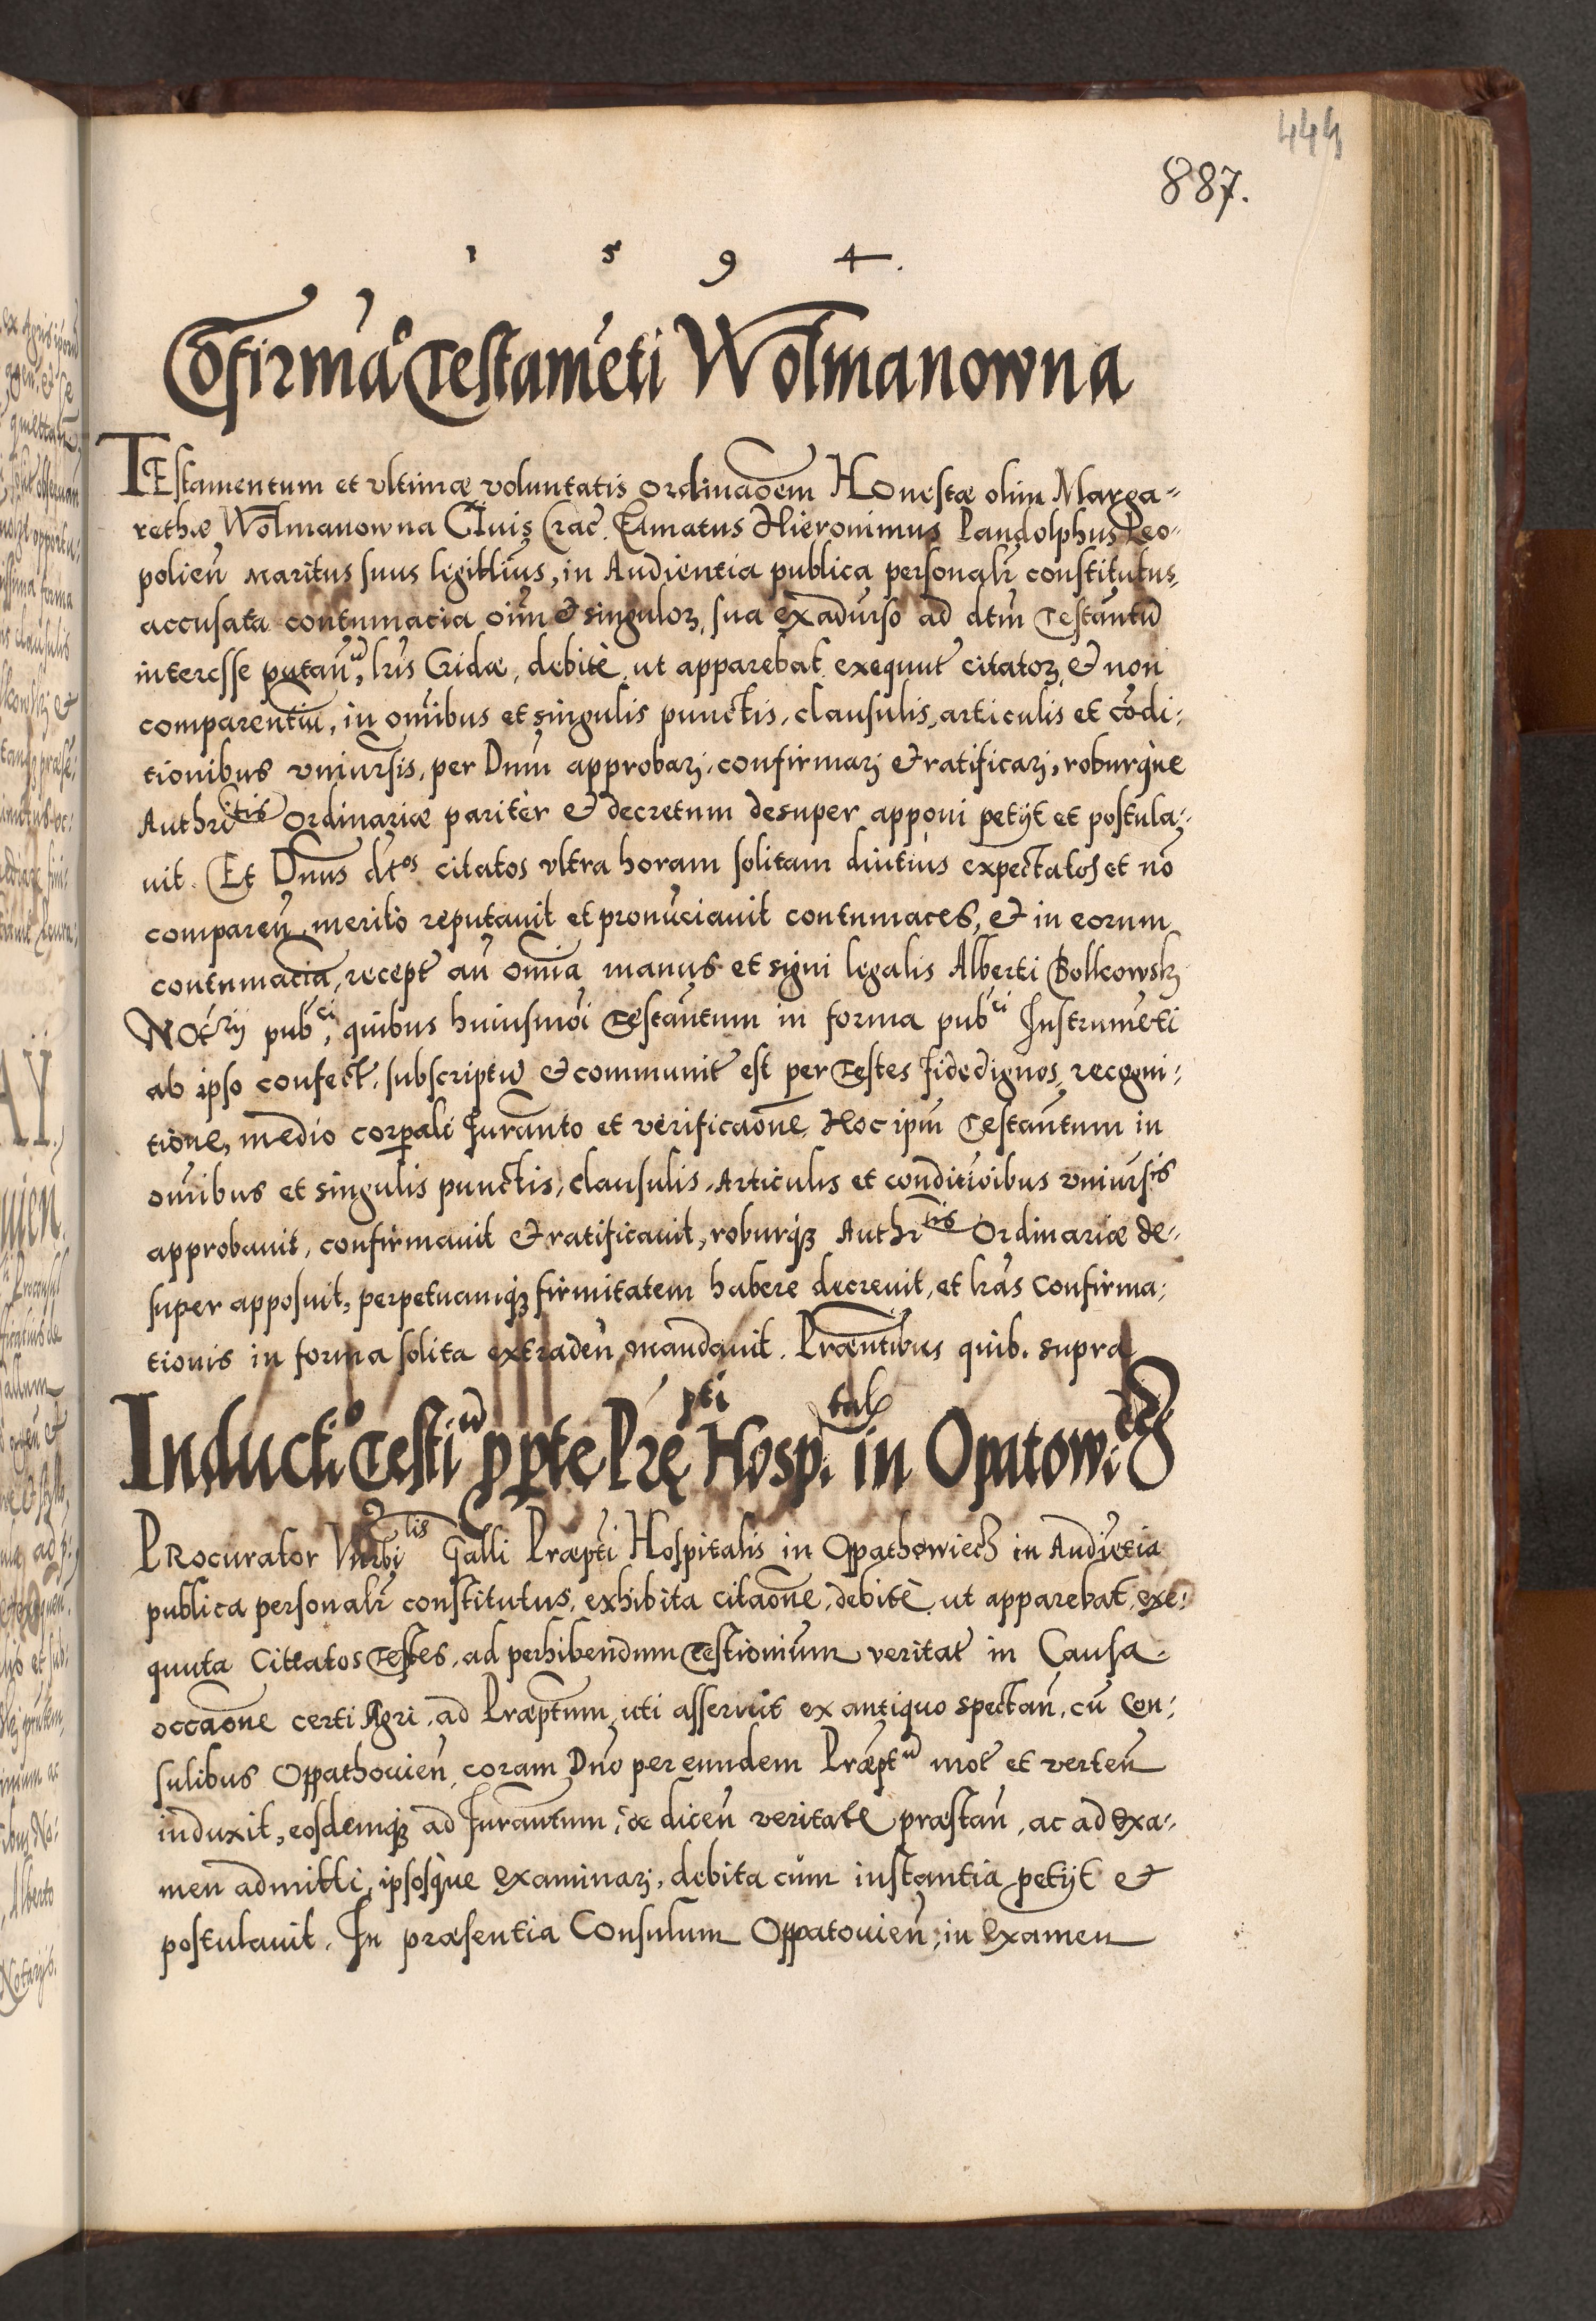 444
887.
1 5 9 4.
Cõfirmaõ Testamẽti Wolmanowna
TEstamentum et vltimæ voluntatis ordinaõem Honestæ olim Marga-
rethæ Wolmanowna Ciuis Crac̃. Famatus Hieronimus Pandolphus Leo-
polieñ Maritus suus legittĩus, in Audientia publica personalr̃ constitutus,
accusata contumacia oĩm & singuloꝝ, sua ex aduꝛso ad dtm̃ Testam̃tũ
interesse putañũ, lr̃is Cridæ, debitè, ut apparebat exequut̃ citatoꝝ, & non
comparentiũ, in om̃ibus et singulis punctis, clausulis, articulis et cõdi-
tionibus vniuꝛsis, per Dnum̃ approbarj, confirmarj & ratificarj, roburq̀ue
Authr̃itis Ordinariæ paritèr & decretum desuper apponi petÿt et postula-
uit. Et Dnus̃ dtos citatos vltra horam solitam diutiùs expectatos et nõ
compareñ, meritò reputauit et pronũciauit contumaces, & in eorum
contumaciã, recept̃ añ om̃ia manus et signi legalis Alberti Bolkowskj
Not̃rij pubci, quibus huiusmõi Testam̃tum in forma pubci Instrumẽti
ab ipso confect̃, subscriptũ & communit̃ est per Testes fidedignos, recogni-
tione, medio corꝑali Juram̃to et verificaõne, Hoc ipm̃ Testam̃tum in
om̃ibus et singulis punctis, clausulis, Articulis et conditiõibus vniuꝛsis
approbauit, confirmauit & ratificauit, roburqꝫ Authr̃tis Ordinariæ de-
super apposuit, perpetuamqꝫ firmitatem habere decreuit, et lr̃as Confirma-
tionis in forma solita extradeñ, mandauit. Præñtibus quib. supra
Inducti⁰ Testiũ ꝑ ꝑte Prę pti Hosp. tal in Opatowiecz
Procurator Vñrbilis Galli Præpti Hospitalis in Oppathowiecz in Audiẽtia
publica personalr̃ constitutus, exhibita citaõne, debitè ut apparebat exe-
quuta Cittatos Testes, ad perhibendum Testioniũm veritat̃ in Causa
occaõne certi Agri, ad Præptum̃, uti asseruit ex antiquo spectañ, cũ Con-
sulibus Oppathouieñ, coram Dno per eundem Præptũ mot̃ et verteñ
induxit, eosdemqꝫ ad Juram̃tum, de diceñ veritate præstañ, ac ad exa-
men admitti, ipsosq̀ue examinarj, debita cùm instantia petÿt &
postulauit. In præsentia Consulum Oppatouieñ, in examen